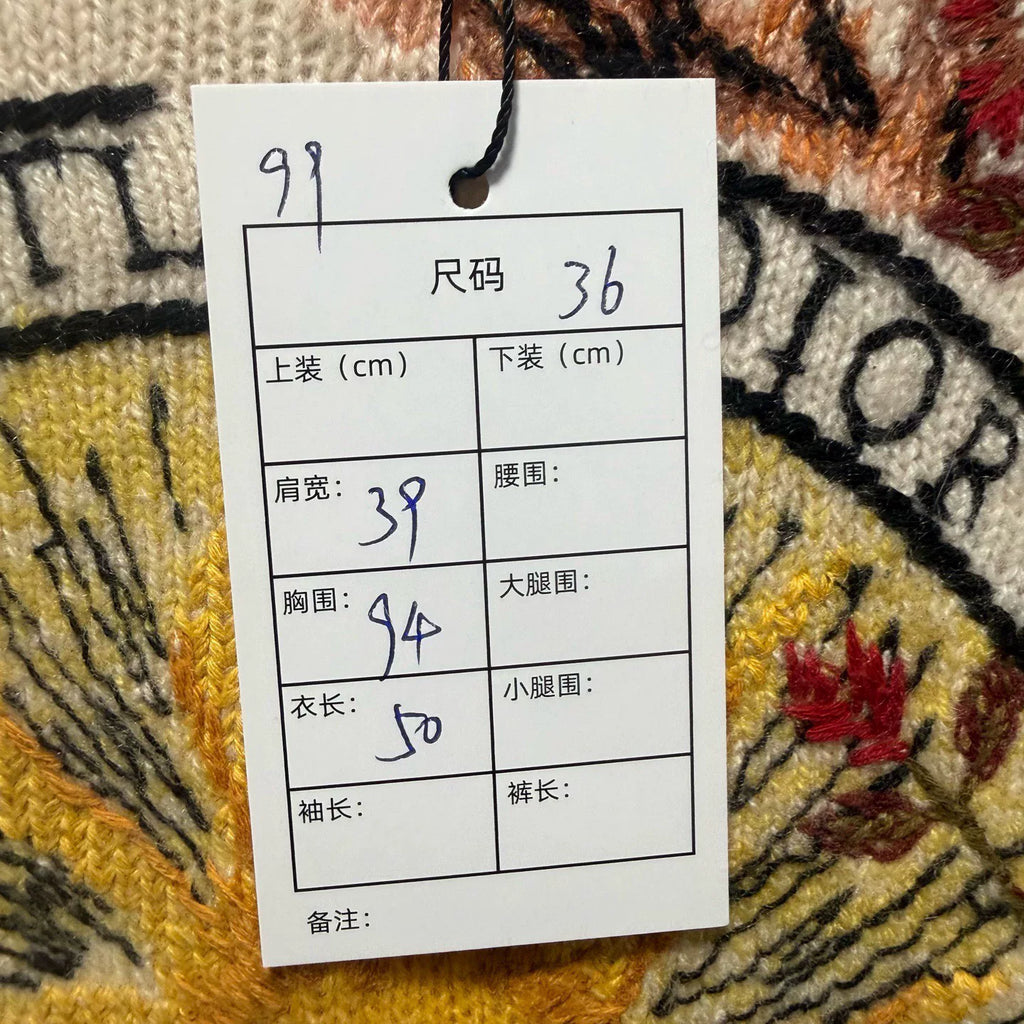 99
尺码 36
上装（cm） 下装（cm）
肩宽： 39 腰围：
胸围： 94 大腿围：
衣长： 50 小腿围：
袖长： 裤长：
备注：
DIOR